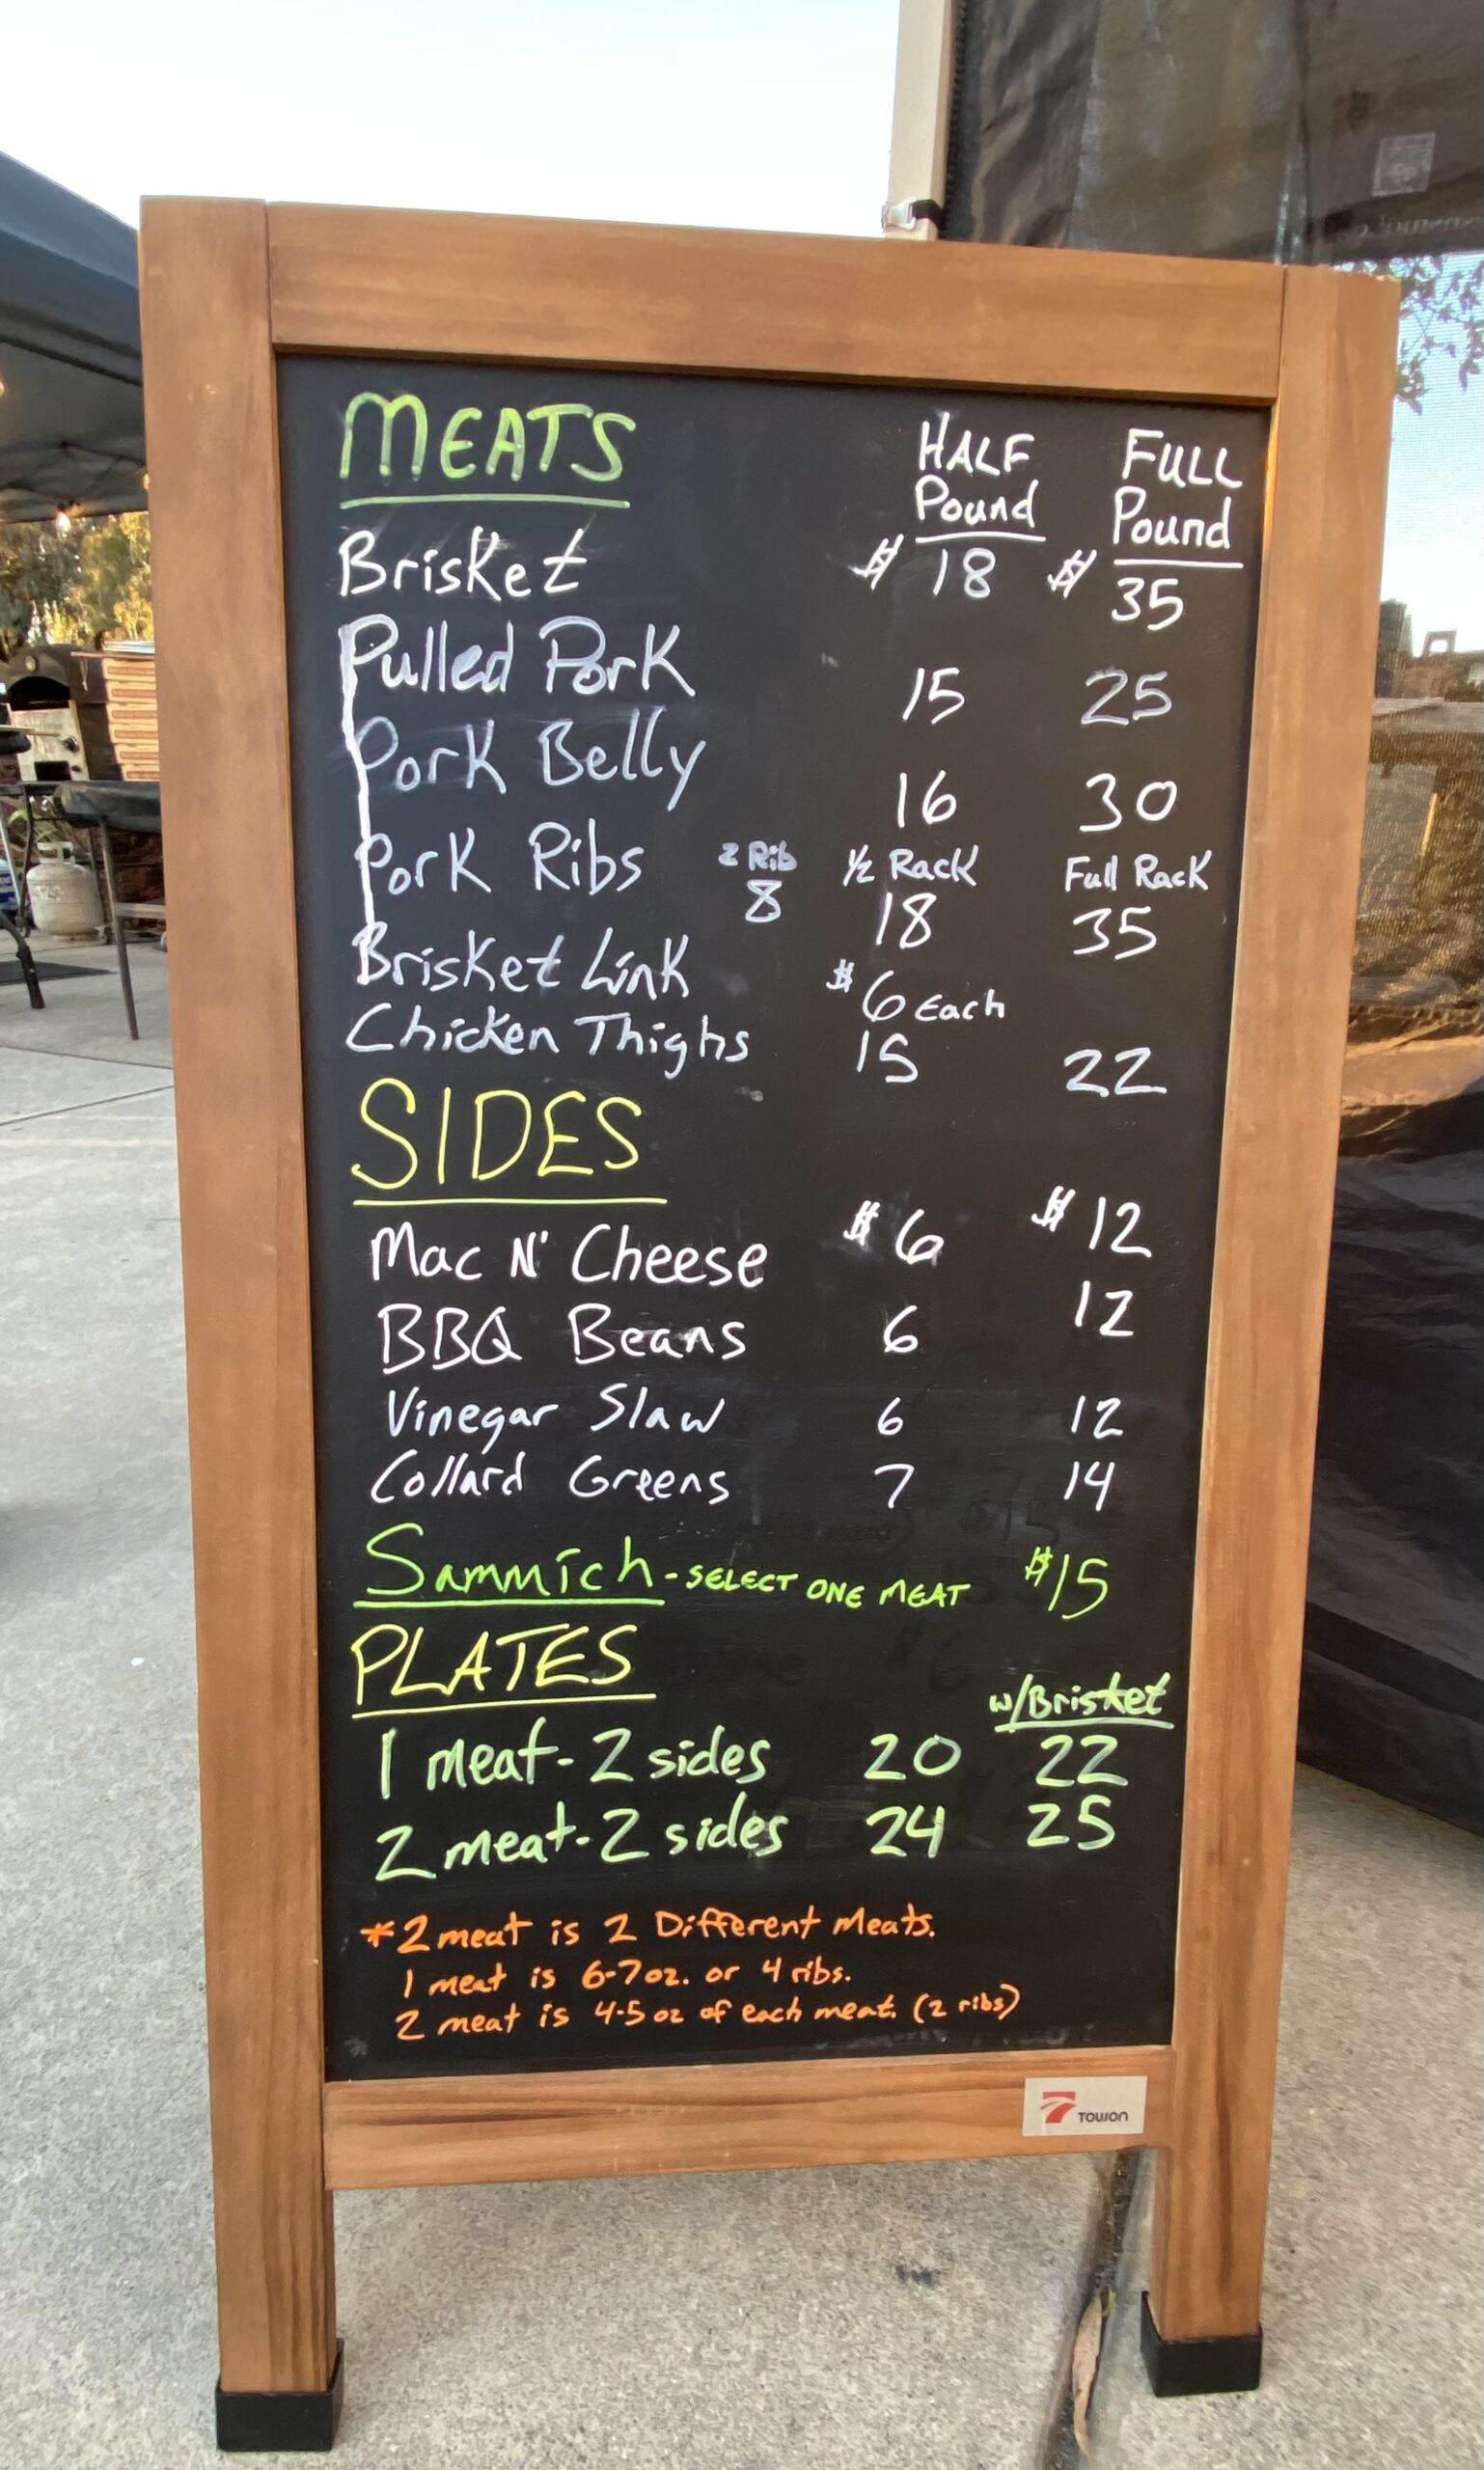 MEATS HALF Pound FULL Pound
Brisket $ 18 $ 35
Pulled Pork 15 25
Pork Belly 16 30
Pork Ribs 2 Rib 8 ½ Rack 18 Full Rack 35
Brisket Link $6 Each
Chicken Thighs 15 22
SIDES
Mac N' Cheese $6 $12
BBQ Beans 6 12
Vinegar Slaw 6 12
Collard Greens 7 14
Sammich - SELECT ONE MEAT $15
PLATES w/Brisket
1 meat - 2 sides 20 22
2 meat - 2 sides 24 25
*2 meat is 2 Different Meats.
1 meat is 6-7 oz. or 4 ribs.
2 meat is 4-5 oz of each meat. (2 ribs)
TOWON